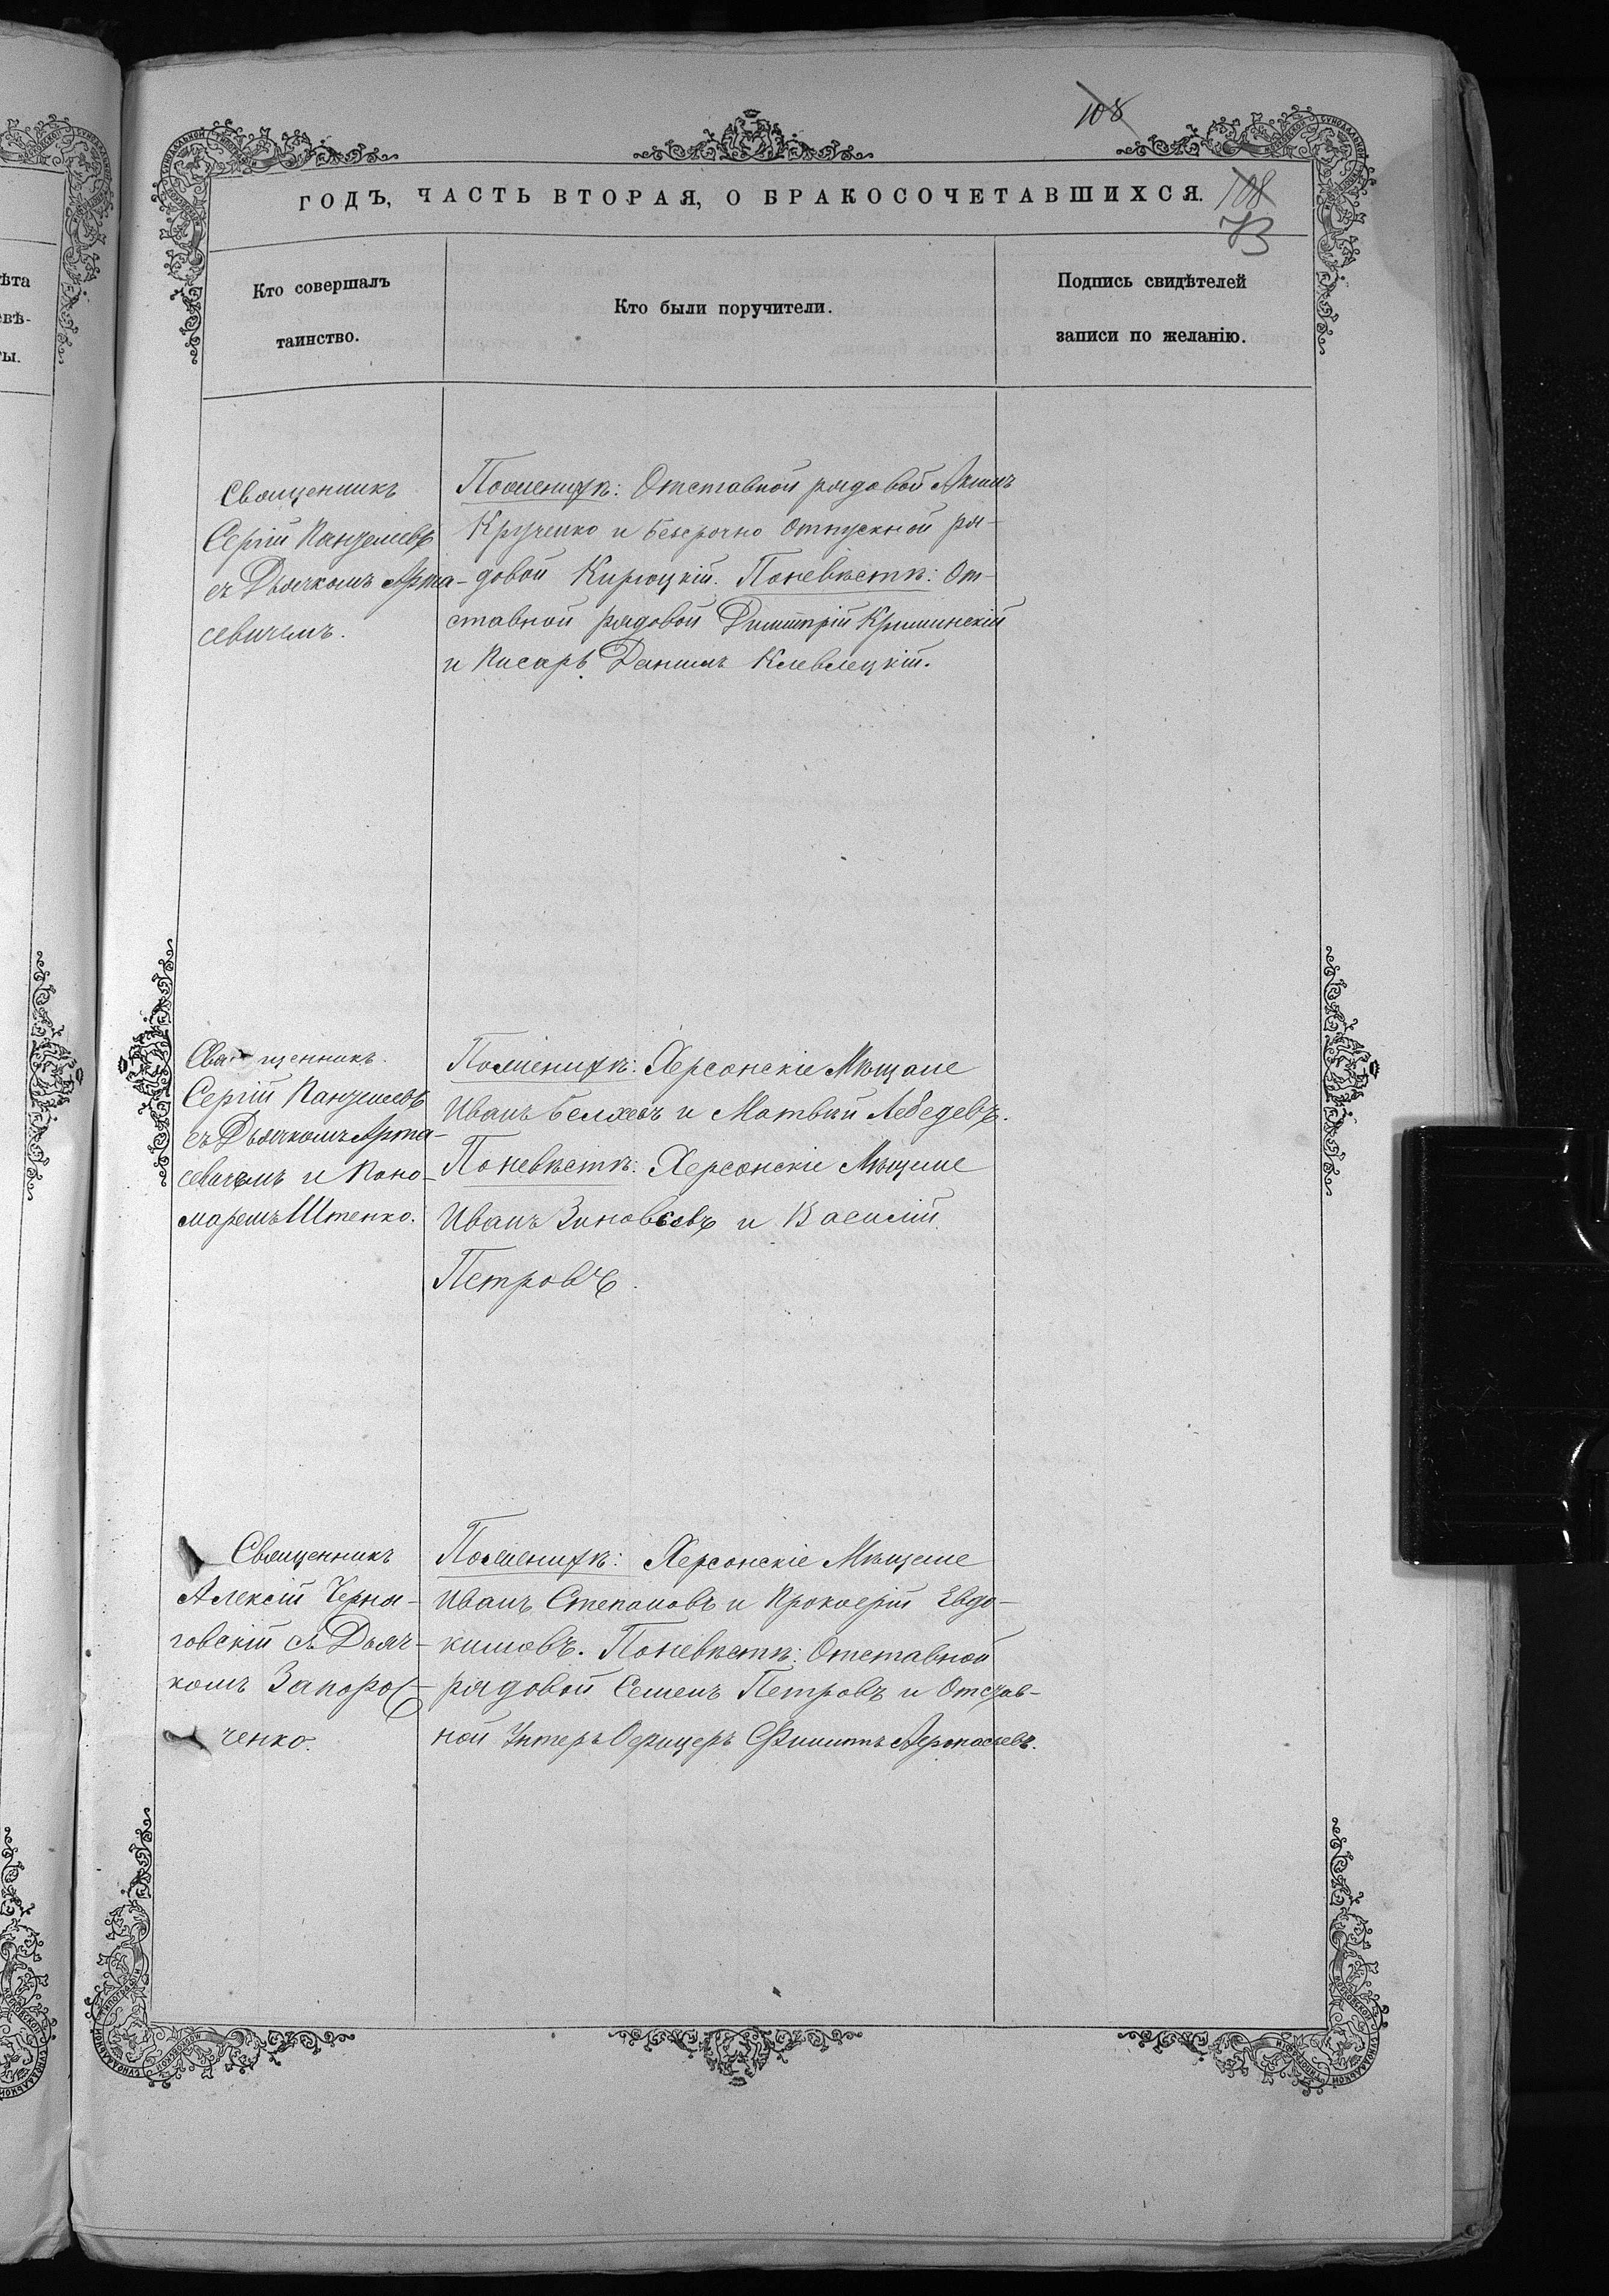 108
ГОДЪ, ЧАСТЬ ВТОРАЯ, О БРАКОСОЧЕТАВШИХСЯ.
108
73
Кто совершалъ
таинство.
Кто были поручители.
Подпись свидѣтелей
записи по желанію.
ѣта
евѣ-
ты.
Священникъ
Сергій
съ Дьячкомъ Арта-
севичемъ.
Поженихѣ: Отставной рядовой
Крученко и безсрочно отпускной ря-
довой Кирюцкій. Поневѣстѣ: От-
ставной рядовой Димитрій Криминскій
и Писарь Данилъ Клевлецкій.
Священникъ
Сергій
съ Дьячкомъ Арта-
севичемъ и Поно-
маремъ Штенко.
Поженихѣ: Херсонскіе Мѣщане
Иванъ и Матвѣй Лебедевъ.
Поневѣстѣ: Херсонскіе Мѣщане
Иванъ Зиновьевъ и Василій
Петровъ.
Священникъ
Алексій Черня-
говскій съ Дьяч-
комъ Запорос-
ченко.
Поженихѣ: Херсонскіе Мѣщане
Иванъ Степановъ и Прокофій Евдо-
кимовъ. Поневѣстѣ: Отставной
рядовой Семенъ Петровъ и Отстав-
ной Унтеръ Офицеръ Филиппъ Афонасьевъ.